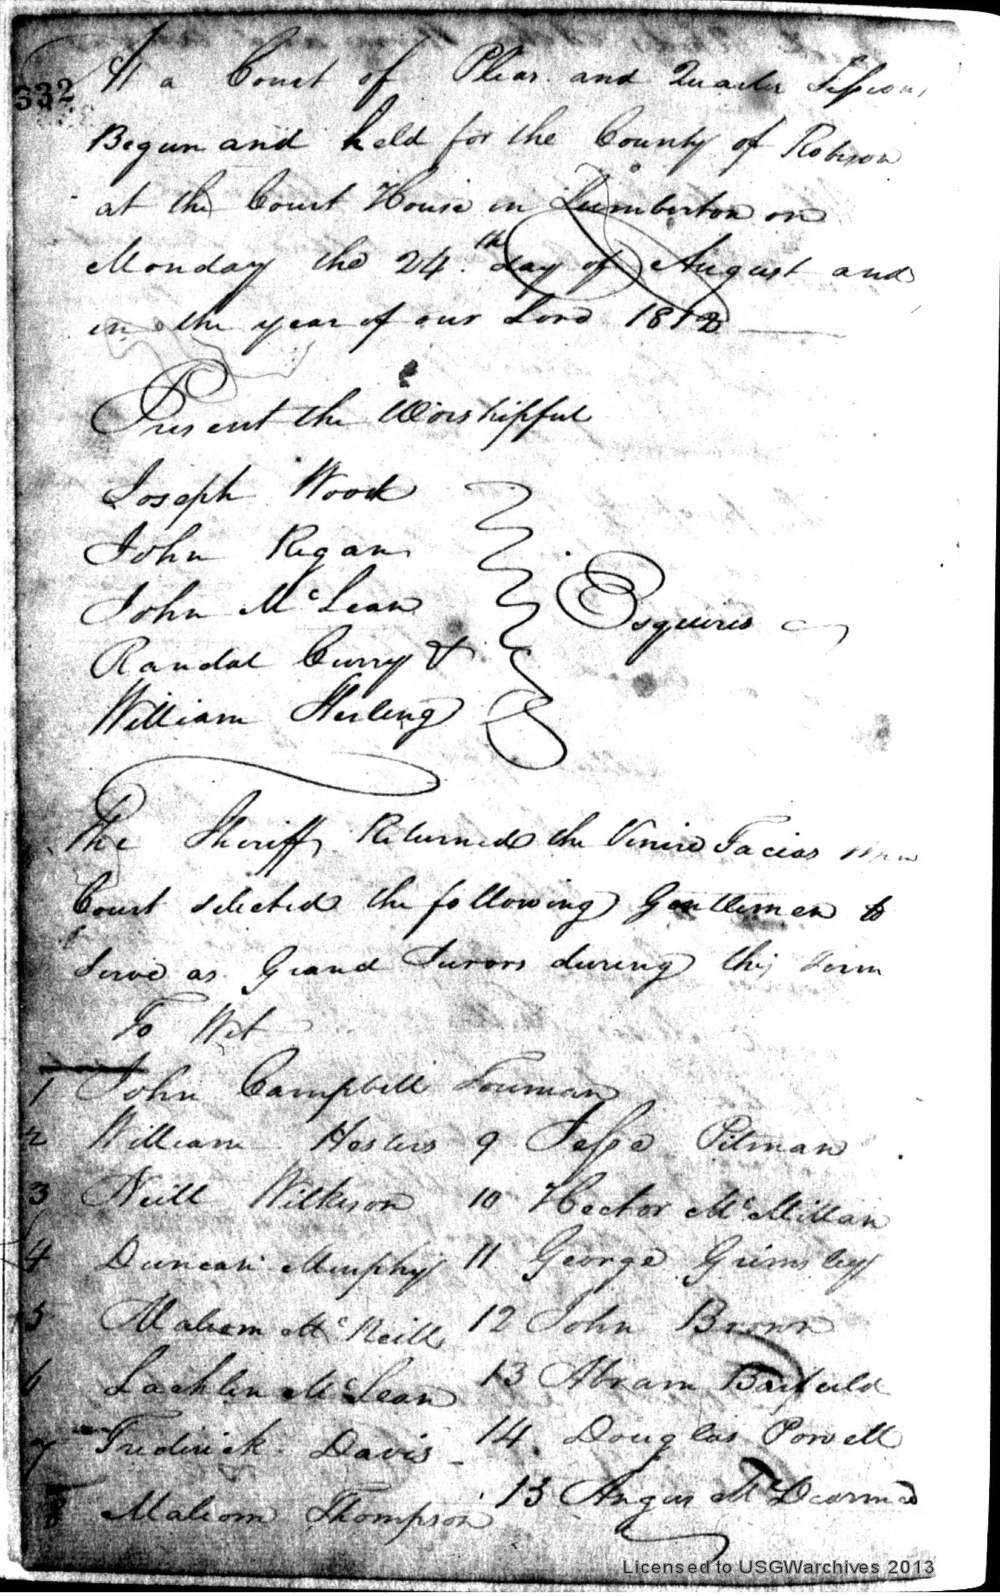 332
At a Court of Pleas and Quarter Sessions
Begun and held for the County of Robeson
at the Court House in Lumberton on
Monday the 24.th day of August and
in the year of our Lord 1812
Present the Worshipful
Joseph Wood
John Regan
John McLean
Randal Curry &
William Sterling
Esquires
The Sheriff Returned the Venire Facias
Court selected the following Gentlemen to
Serve as Grand Jurors during this Term
To Wit
1 John Campbell Foreman
2 William
3 Neill Wilkison
4 Duncan Murphy
5 Malcom McNeill
6 Lachlin McLean
7 Frederick Davis
8 Malcom Thompson
9 Jesse Pitman
10 Hector McMillan
11 George Grimsley
12 John Brown
13 Abram Barfield
14. Douglas Powell
15 Angus
Licensed to USGWarchives 2013